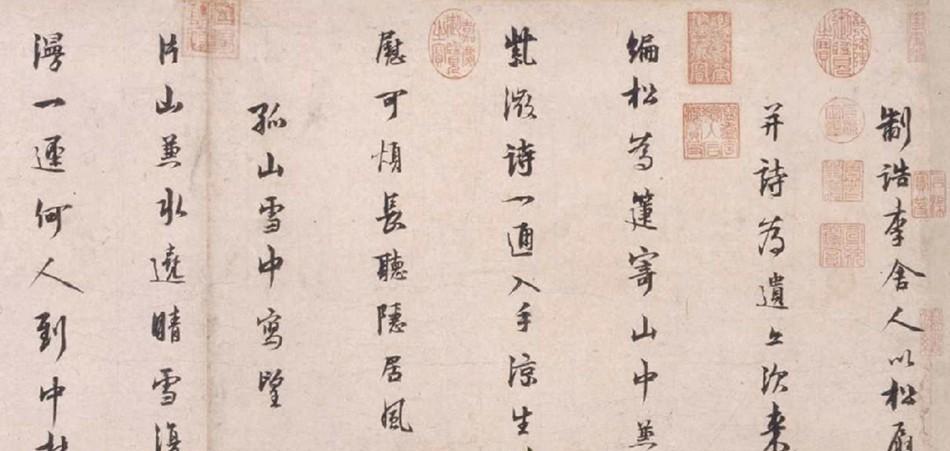 制誥李舍人以松扇
并詩為遺亦次来
編松為箑寄山中兼
紫微詩一通入手涼生
慰可煩長聽隱居風
孤山雪中寫望
片山兼水遶晴雪復
漫一逕何人到中林